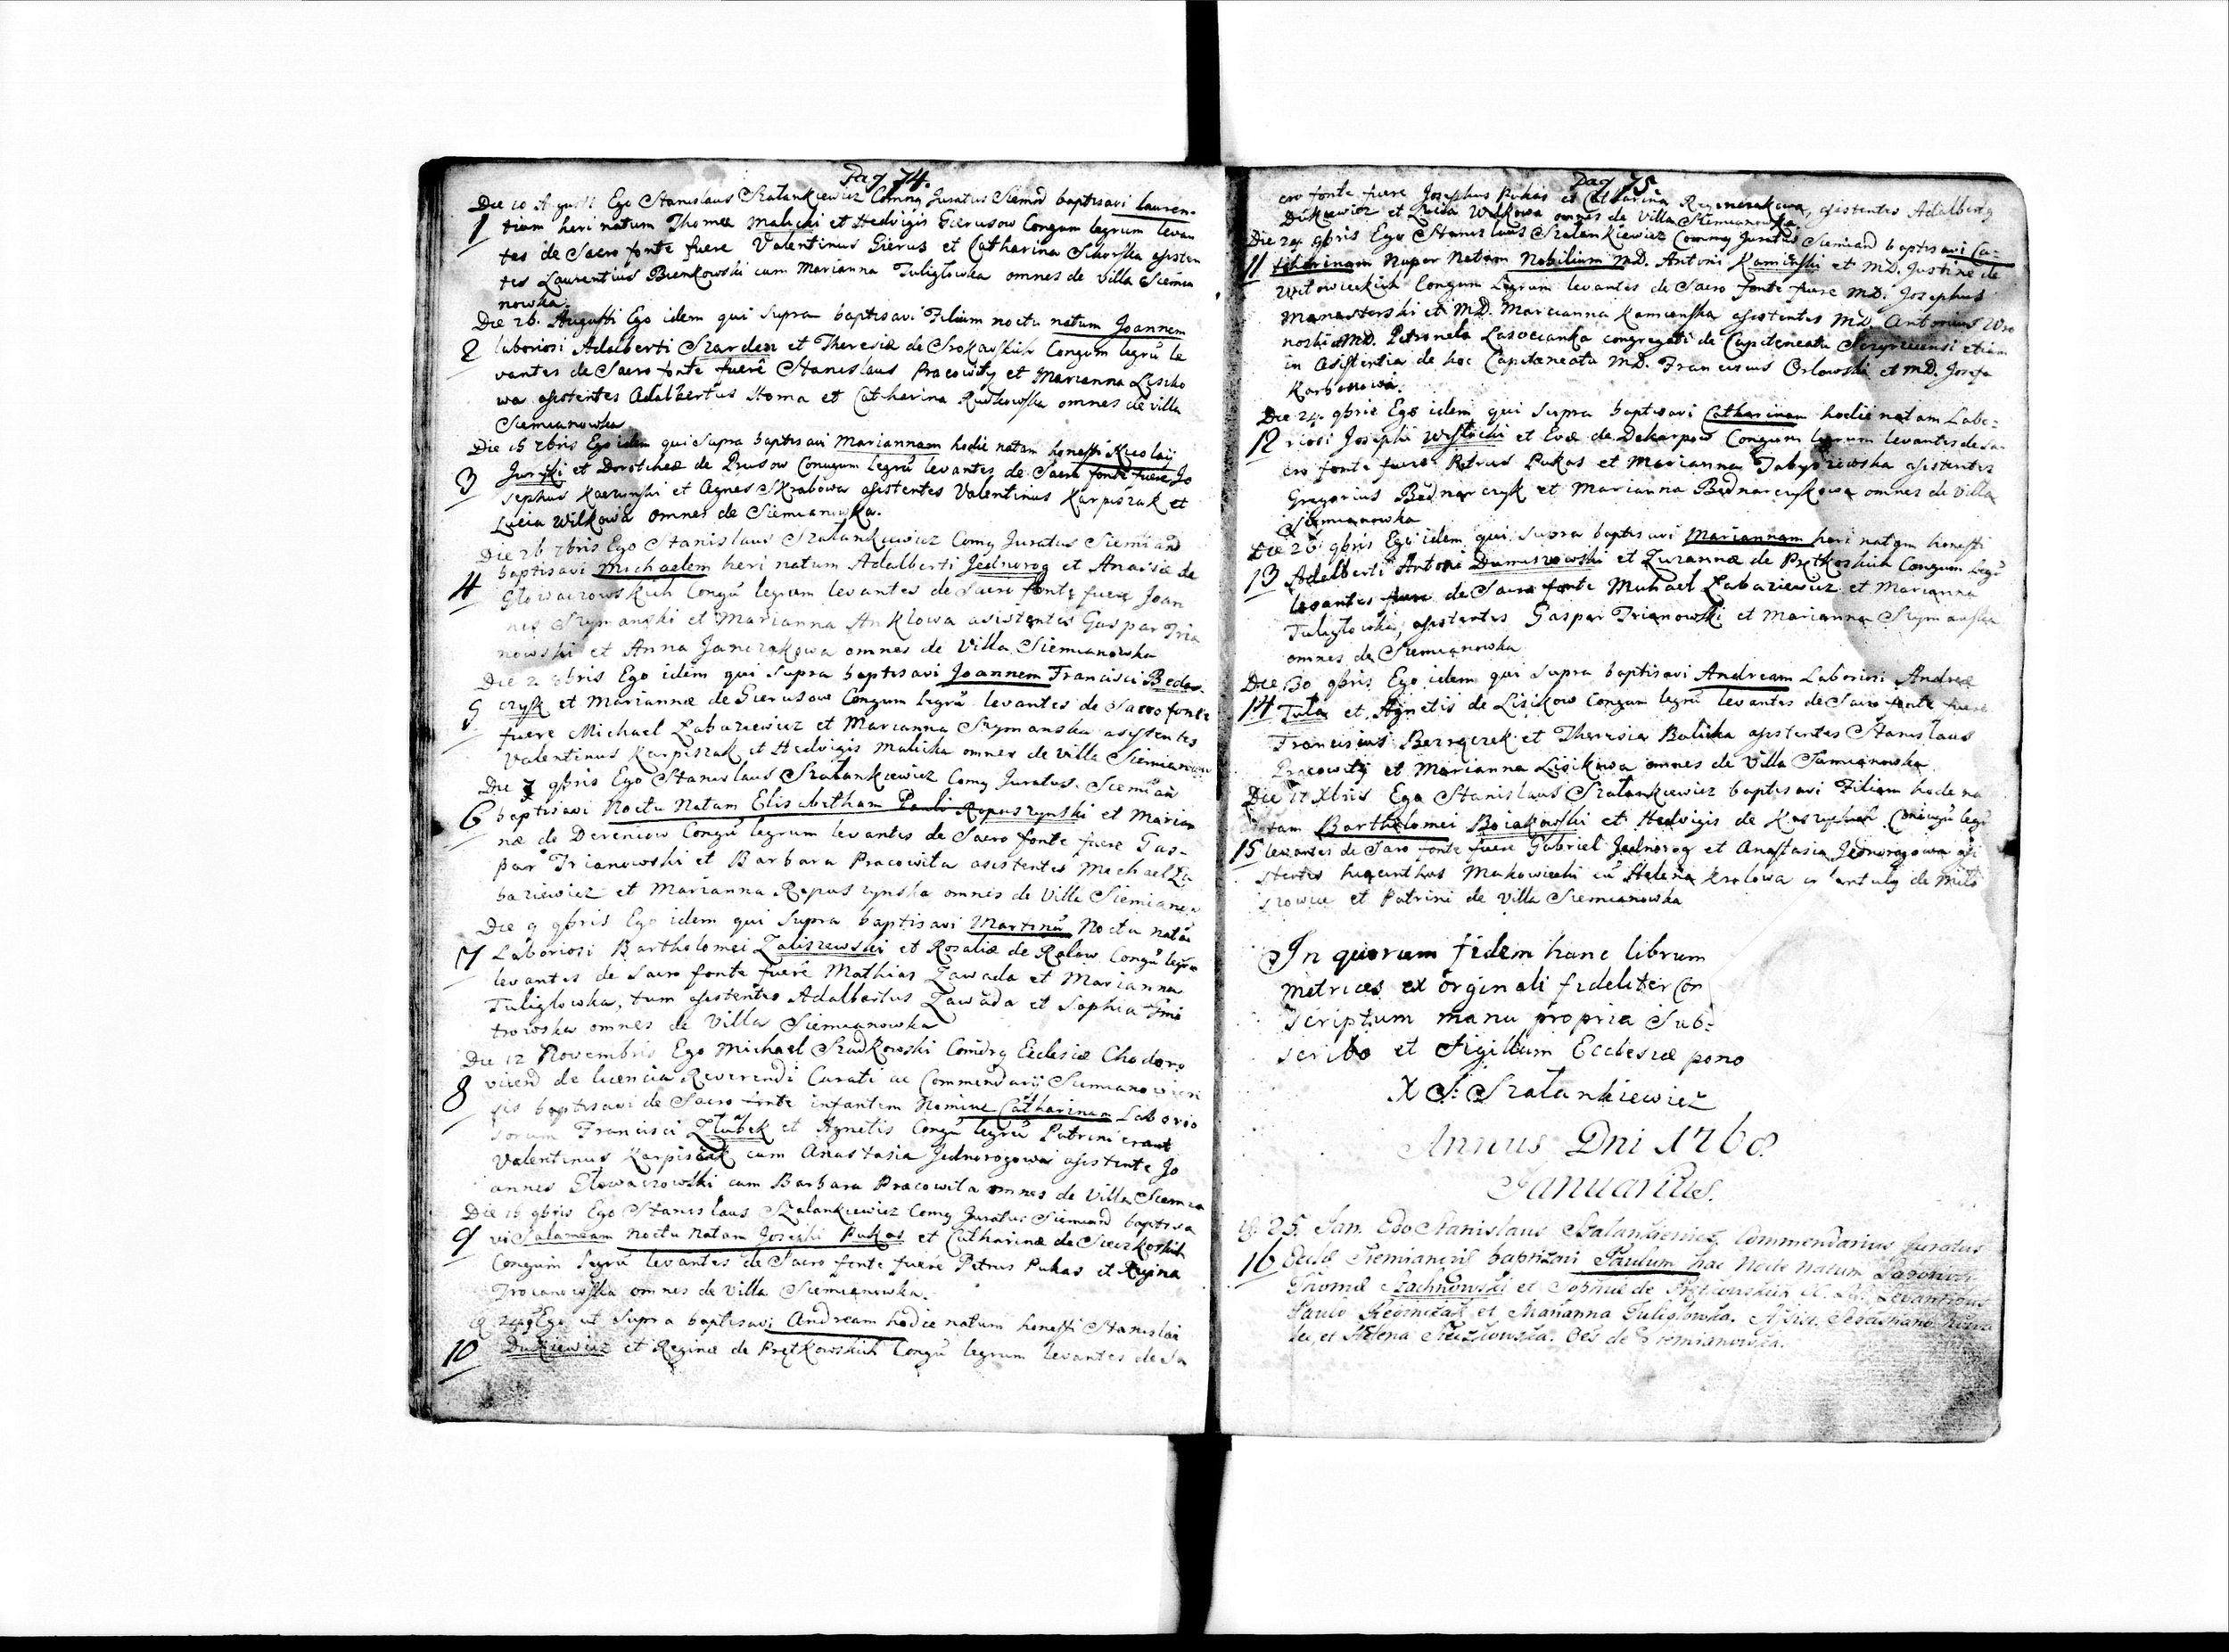 Pag 74.
Die 10 Augusti Ego Stanislaus Szalankiewicz Comng Juratus Siemnd baptisavi Lauren-
1 tium heri natum Thomæ Malicki et Hedvigis Gierusow Congum legrum levan
tes de Sacro fonte fuere Valentinus Gierus et Catharina Sikorska asisten
tes Laurentius Bienkowski cum Marianna Tuliglowka omnes de villa Siemia
nowka.
Die 26. Augusti Ego idem qui supra baptisavi Filium noctu natum Joannem
2 laboriosi Adalberti Szarden et Theresiæ de Srokowskich Congum legrũ le
vantes de Sacro fonte fuerē Stanislaus Pracowity et Marianna Lisiko
wa asistentes Adalbertus Homa et Catharina Rudkowska omnes de villa
Siemianowka
Die 15 7bris Ego idem qui supra baptisavi Mariannam hodie natam honesti
3 et Dorotheæ de Prusow Coniugum legrũ levantes de Sacro fonte fuere Jo
sephus Kaczynski et Agnes Skrabowa asistentes Valentinus Karpiszak et
Lucia Wilkowa omnes de Siemianowka.
Die 26 7bris Ego Stanislaus Szalankiewicz Comg Juratus Siemiand
4 baptisavi Michaelem heri natum Adalberti Jednorog et Anasiæ de
Glowaczowskich Congũ legrum levantes de Sacro fonte fuere Joan
nes Szymanski et Marianna Anklowa asistentes Gaspar Tria
nowski et Anna Janczakowa omnes de Villa Siemianowka
Die 2 8bris Ego idem qui supra baptisavi Joannem Francisci Bedar-
5 czyk et Mariannæ de Gierusow Congum legrũ levantes de Sacro fonte
fuere Michael Labaziewicz et Marianna Szymanska asystentes
Valentinus Karpiszak et Hedvigis Malicka omnes de villa Siemianow
Die 7 9bris Ego Stanislaus Szalankiewicz Comg Juratus Siemian
6 baptisavi Noctu Natam Elisabetham Pauli Ropuszynski et Marian
næ de Dereniow Congũ legrum levantes de Sacro fonte fuere Gas-
par Trianowski et Barbara Pracowita asistentes Michael La
baziewicz et Marianna Ropuszynska omnes de Villa Siemianow
Die 9 9bris Ego idem qui supra baptisavi Martinũ Noctu natũ
7 Laboriosi Bartholomei Zaliszewski et Rosaliæ de Ralow Congũ legrũ
levantes de Sacro fonte fuere Mathias Zawada et Marianna
Tuliglowka, tum asistentes Adalbertus Zawada et Sophia Dmi
trowska omnes de Villa Siemianowka
Die 12 Novembris Ego Michael Szadkowski Comdrg Ecclesiæ Chodoro
8 viien de licencia Reverendi Curati ac Commendarij Siemianovien
sis baptisavi de Sacro fonte infantem Nomine Catharinam Laborio
sorum Francisci Zlubek et Agnetis Congũ legrũ Patrini erant
Valentinus Karpiszak cum Anastasia Jednorogowa asistente Jo
annes Glowaczowski cum Barbara Pracowita omnes de Villa Siemia
Die 16 9bris Ego Stanislaus Szalankiewicz Comg Juratus Siemiand baptisa
9 vi Salameam noctu natam Josephi Pukas et Catharinæ de Sieczkoskich
Congum legrũ levantes de Sacro fonte fuere Petrus Pukas et Regina
Trocianowska omnes de Villa Siemianowka.
24 9 Ego ut supra baptisavi Andream hodie natum honesti Stanislai
10 Dukiewicz et Reginæ de Prętkowskich Congũ legrum levantes de Sa
Pag 75.
cro fonte fuere Josephus Pukas et Catharina Regnerakowa, asistentes Adalberg
Dikiewicz et Lucia Wilkowa omnes de Villa Siemianowka.
Die 24 9bris Ego Stanislaus Szalankiewicz Commg Juratus Siemiand baptisavi Ca-
11 tharinam Nuper Natam Nobilium MD. Antoni Kaminski et MD. Justinæ de
Witowieckich Congum Legrum levantes de Sacro fonte fuere MD. Josephus
Manasterski et MD. Marianna Kamienska asistentes MD. Antonius Wro
noski et MD. Petronela Lasocianka congregati de Capitaneatu Szczyrecensi etiam
in Asistentia de hoc Capitaneatu MD. Franciscus Orlowski et MD. Josefa
Karbonowa.
Die 24. 9bris Ego idem qui supra baptisavi Catharinam hodie natam Labo-
12 riosi Josephi Wislocki et Evæ de Dekarpow Congum legrum levantes de Sa-
cro fonte fuere Petrus Pukas et Marianna Tabyszewska asistentes
Gregorius Bednarczyk et Marianna Bednarczykowa omnes de Villa
Siemianowka
Die 26 9bris Ego idem qui supra baptisavi Mariannam heri natam honesti
13 Adalberti Antoni Damiszowski et Zuzannæ de Prętkoskich Congum legrũ
levantes fuere de Sacro fonte Michael Labaziewicz et Marianna
Tuliglowka, asistentes Gaspar Trianowski et Marianna Szymanska
omnes de Siemianowka
Die 30 9bris Ego idem qui supra baptisavi Andream Laboriosi Andreæ
14 Tula et Agnetis de Lisikow Congum legrũ levantes de Sacro fonte fuere
Franciscus Bernaczek et Theresia Balicka asistentes Stanislaus
Pracowity et Marianna Lisikowa omnes de Villa Siemianowka
Die 17 Xbris Ego Stanislaus Szalankiewicz baptisavi Filiam hodie na
tam Bartholomei Boiakowski et Hedvigis de Coniugũ legr
15 levantes de Sacro fonte fuere Gabriel Jednorog et Anastasia Jednorogowa asi
stentes hyacinthus Makowiecki cũ Helena Krolowa de Milo
szowice et Patrini de Villa Siemianowka
In quorum fidem hanc librum
metrices ex orginali fideliter Con
scriptum manu propria Sub-
scribo et Sigillum Ecclesiæ pono
X S: Szalankiewicz
Annus Dni 1768
Januarius.
25. Jan. Ego Stanislaus Szalankiewicz Commendarius Juratus
16 Eccle Siemianens baptizavi Paulum hac Nocte natum
Thomæ Szachnowski et Sophiæ de Prętkowskich Levantibus
Paulo Regniczak et Marianna Tuliglowka. Assis. Sebastiano
et Helena Oẽs de Siemianowka.